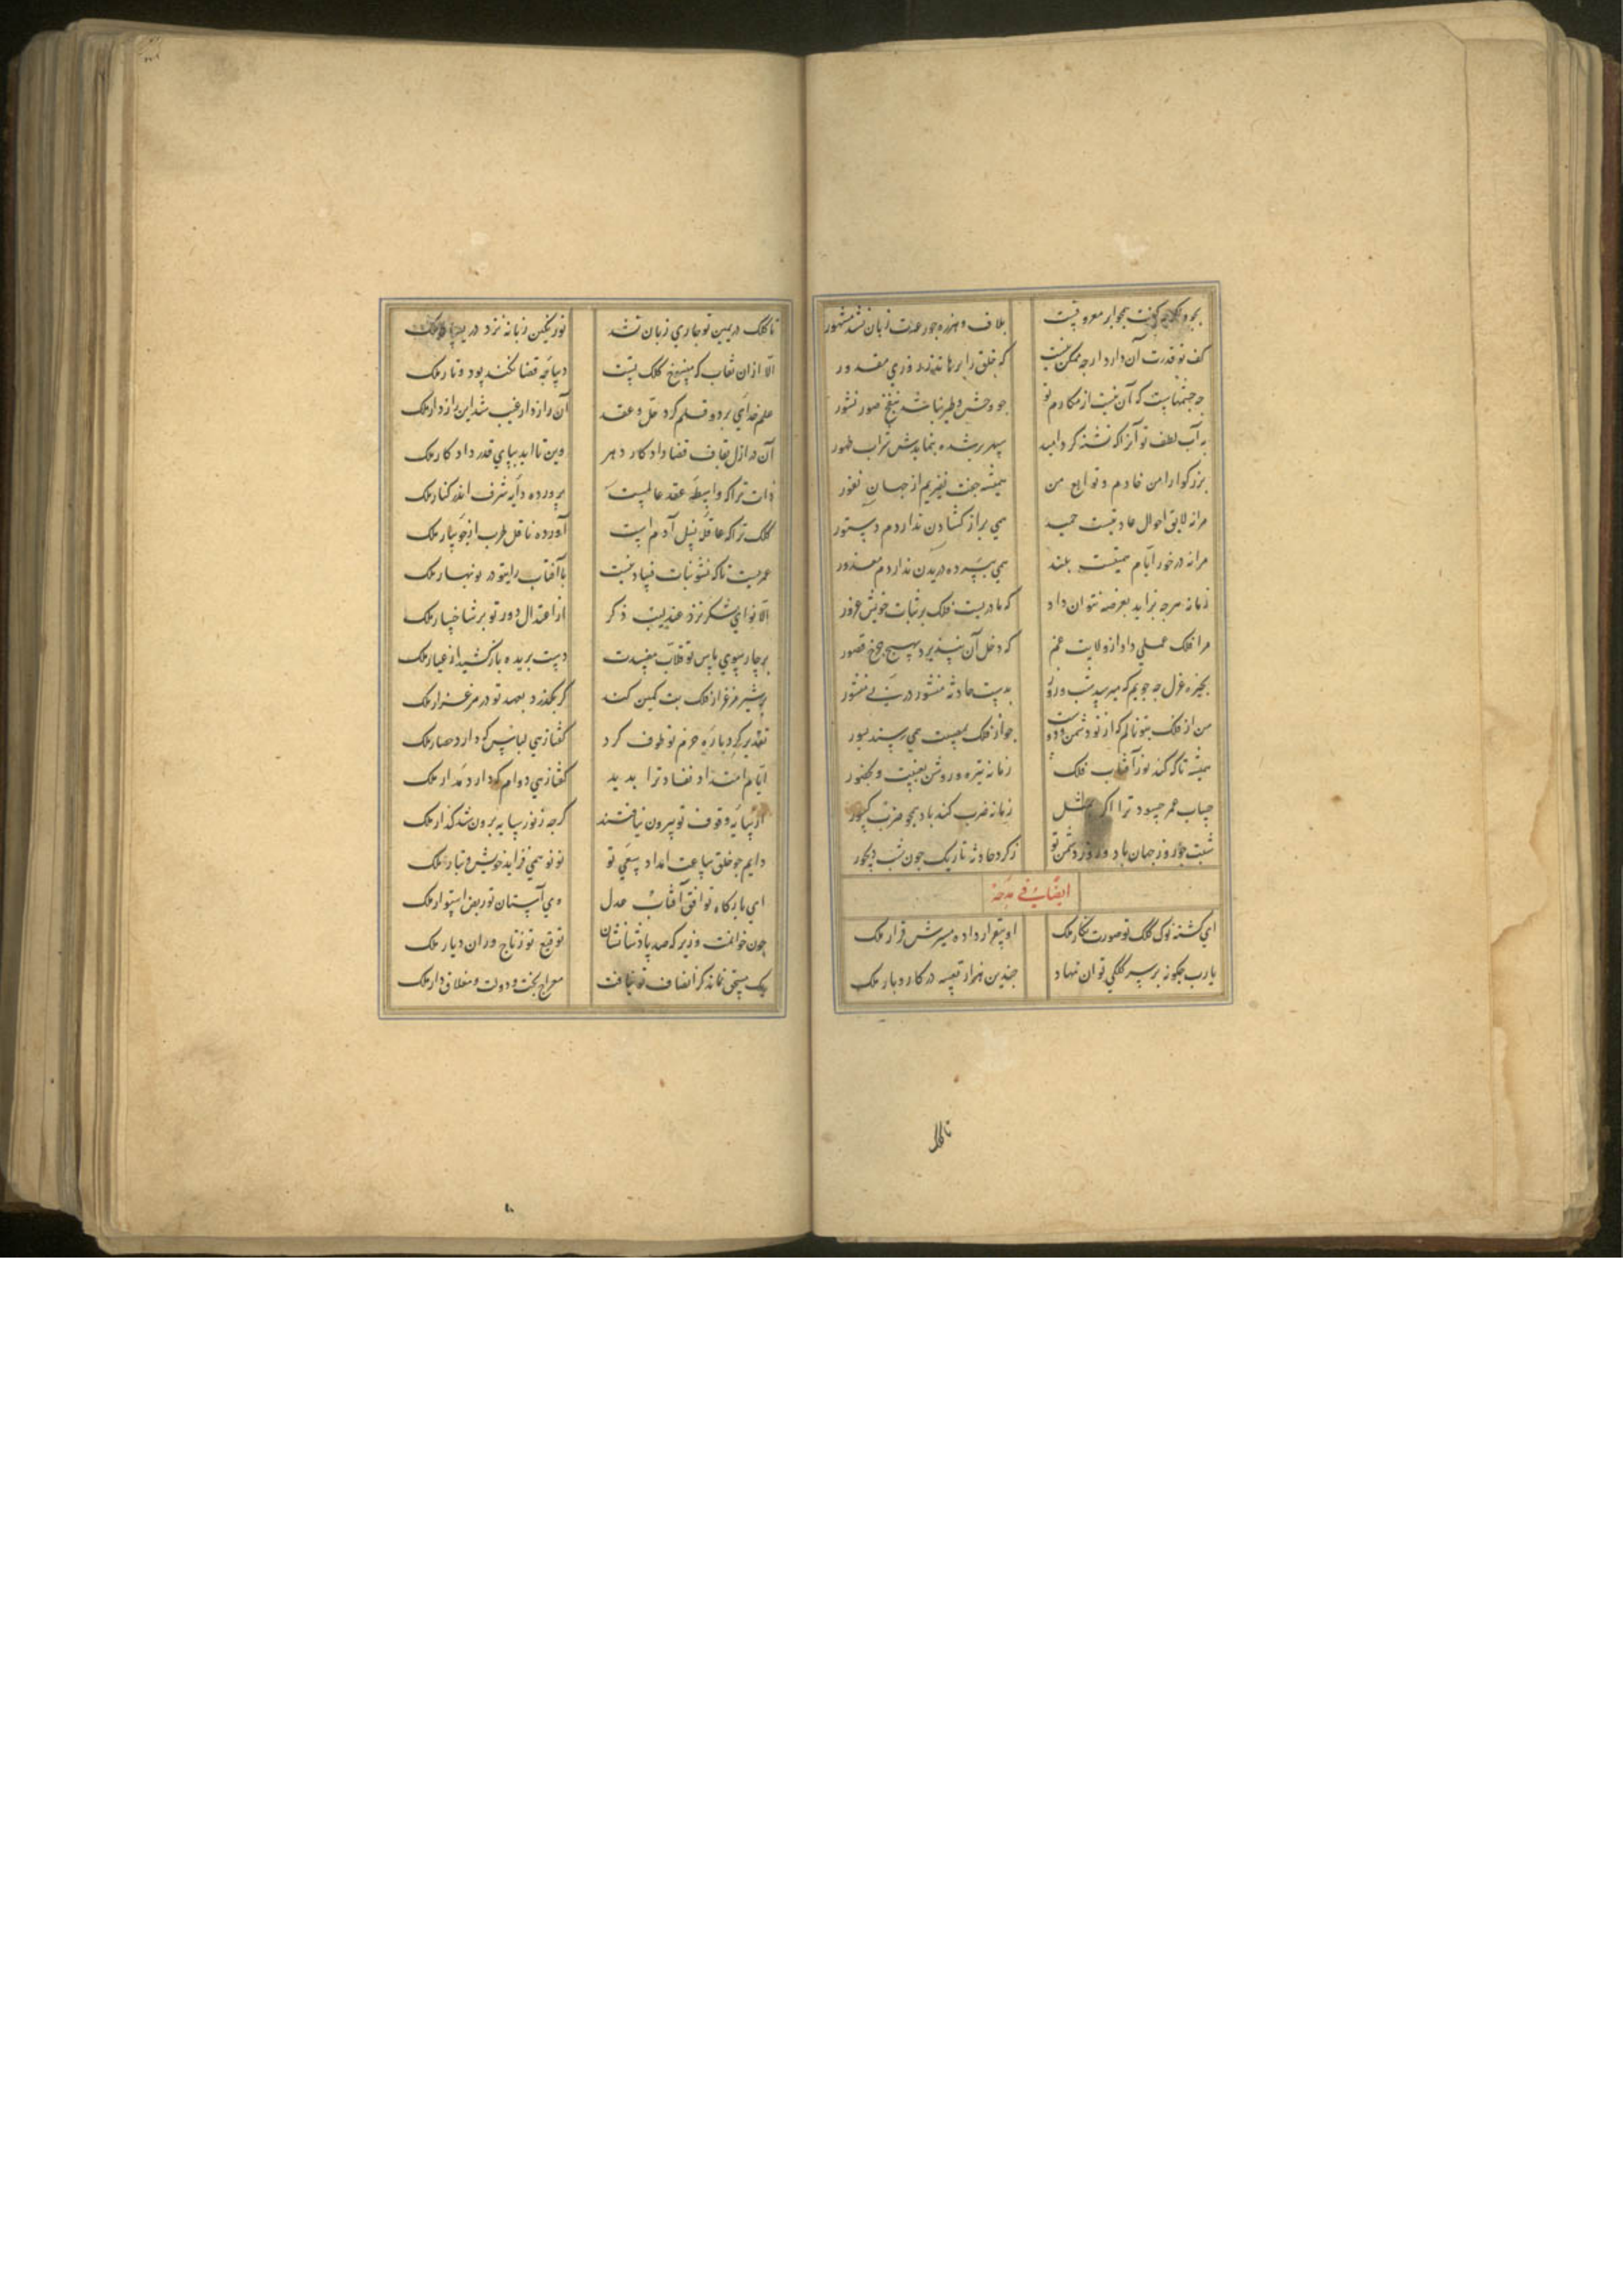 بجود کفت چو ابر معروفست
بلاف و هرزه چو رعدت زبان نشد مشهور
کف تو قدرت آن دارد ارچه ممکن نیست
که خلق را برهاند ز روزی مقدور
چه جنتهاست که آن نیست از مکارم تو
جو وحش و طیر نباشد بنفخ صور نشور
به آب لطف تو آنرا که تشنه کرد امید
سپهر برشده بنمایدش شراب طهور
بزرکوارا من خادم و توابع من
همیشه جفت نفیریم از جهان نفور
مرا نه لایق احوال عادتیست حمید
همی براز کشادن ندارد م دستور
مرا نه درخور ایام همتیست بلند
همی بپرده دریدن نداردم معذور
زمانه هرجه بزاید بعرصه نتوان داد
که مادریست فلک بر بنات خویش غرور
مرا فلک عملی داد از ولایت غم
که دخل آن نپذیرد بهیچ خرج قصور
بخیره عزل جه جویم که میرسد شب و روز
بدست حادثه منشور در پی منشور
من از فلک بتو نالم که از تو دشمن و دوست
جو از فلک بمصیبت همی رسند بسور
همیشه تا که کند نور آفتاب فلک
زمانه تیره و روشن بغیبت و بحضور
حساب عمر حسود ترا اکر بمثل
زمانه ضرب کند باد همجو ضرب کسور
شبت جو روز جهان باد و روز دشمن تو
ز کرد حادثه تاریک چون شب دیجور
ایضاً فی مدحه
ای کشته نوک کلک تو صورت نکار ملک
او بیقرار داده مسیرش قرار ملک
یارب جکونه بر سر کلکی توان نهاد
جندین هزار تعبیه در کار و بار ملک
تا کلک
تا کلک در یمین تو جاری زبان نشد
نور یکین زبانه نزد در یسار ملک
الا از ان نقاب که منسوج کلک تست
دیباجه قضا نکند پود و تار ملک
علم خدای بر دو قلم کرد حل و عقد
آن راز دار غیب شد این راز دار ملک
آن در ازل بقاف قضا داد کار دهر
وین تا ابد بپای قدر داد کار ملک
ذات ترا که واسطه عقد عالمست
پرورده دایه شرف اندر کنار ملک
کلک ترا که عاقله نسل آدم است
آورده ناقل طرب از جویبار ملک
عمریست تا که نشو نبات فساد نیست
با آفتاب رایتو در نوبهار ملک
الا نوای شکر نزد عندلیب ذکر
از اعتدال دور تو بر شاخسار ملک
بر جار سوی باس تو قلاب مفسدت
دست بریده باز کشید از عیار ملک
بر شیر مرغزار فلک بت کمین کند
کر بکذرد بعهد تو در مرغزار ملک
تقدیر کرد باره حزم تو طوف کرد
کفتا زهی لباس که دارد حصار ملک
ایام امتداد نفاد ترا بدید
کفتا زهی دوام که دارد مدار ملک
از سایه وقوف تو بیرون نیافتند
کرجه ز نور سایه برون شد کذار ملک
دایم جو خلق ساعت امداد سعی تو
نو نو همی فزاید خویش و تبار ملک
ای بارکاه تو افق آفتاب عدل
وی آستان تو ربض استوار ملک
چون خوانمت وزیر که صد پادشا نشان
توقیع تو ز تاج وران دیار ملک
یک مستحق نماند کز انصاف تو نیافت
معراج بخت و دولت و معلاق دار ملک